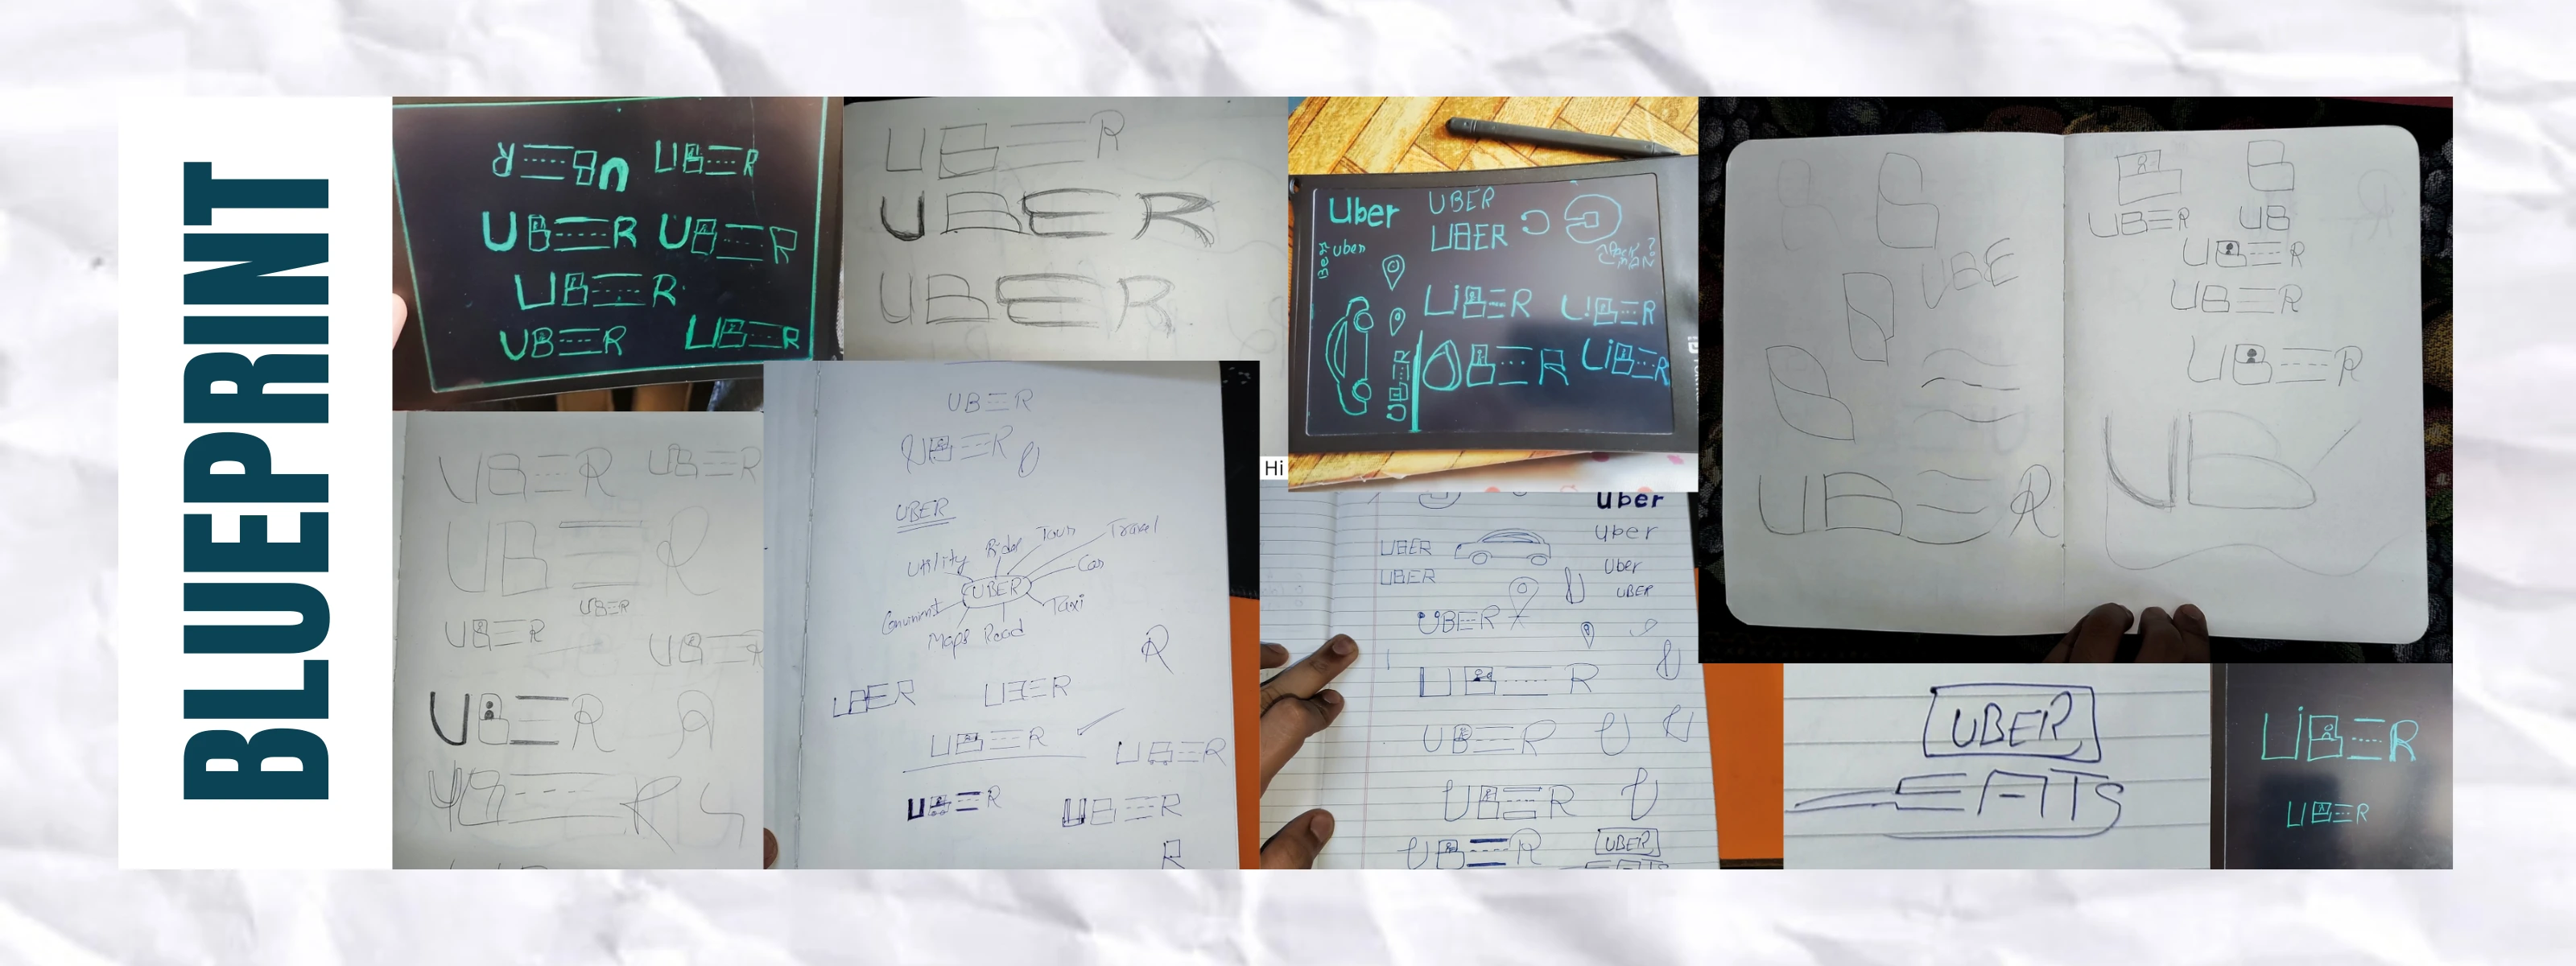 BLUEPRINT
UBER UBER
UBER UBER
UBER
UBER UBER
UBER
UBER
UBER
Uber UBER
UBER
Uber
UBER UBER
UBER UBER
UBER
UBE
UBER
UBER UB
UBER
UBER
UBER
UB
UBER UBER
UBER
UBER
UBER UBER
UBER
UBER
UBER
UBER
UBER
Utility Rider Tour Travel
UBER Car
Taxi
Maps Road
R
UBER UBER
UBER UBER
UBER UBER
R
Hi
Uber
UBER Uber
UBER Uber
UBER
UBER
UBER
UBER
UBER
UBER UBER
EATS
UBER
EATS
UBER
UBER